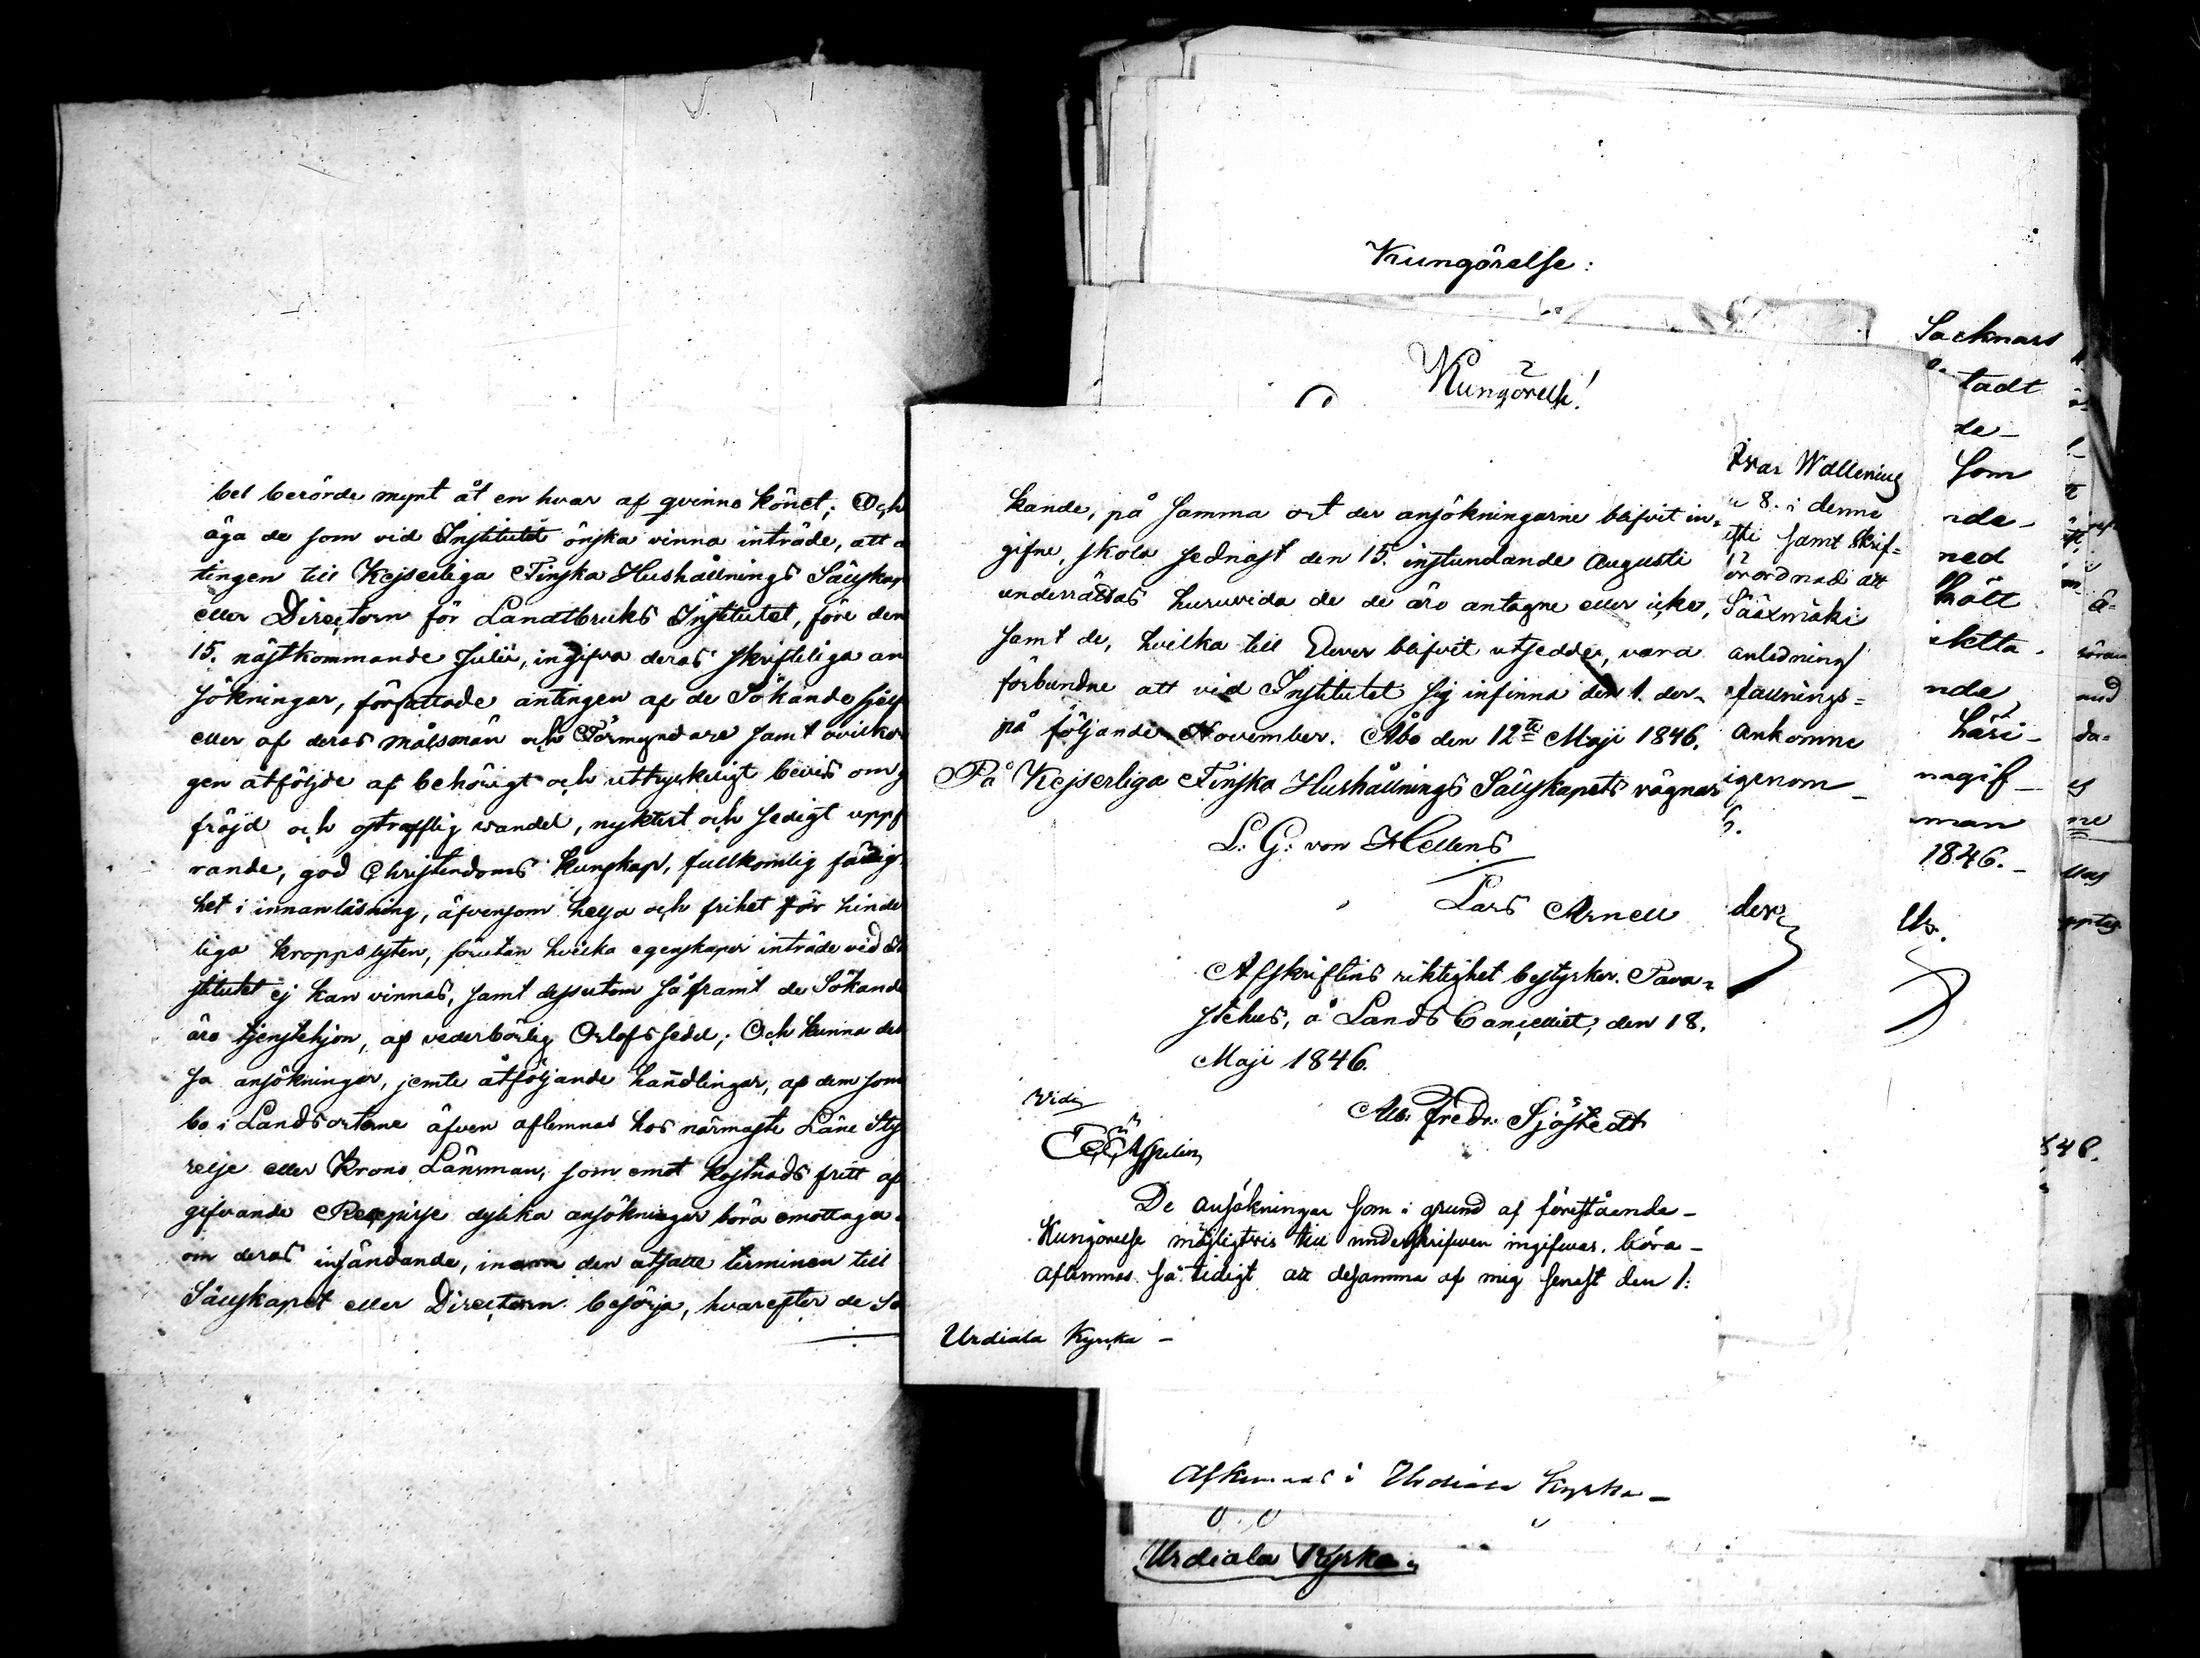 bel berörde mynt åt en hvar af qvinno könet; Och
äga de som vid Institutet önska vinna inträde, att a
tingen till Kejserliga Finska Hushållnings Sällskap
eller Directorn för Landtbruks Institutet, före den
15. nästkommande Julii, ingifva deras skriftliga an
sökningar, författade antingen af de Sökande sjelf
eller af deras målsmän och Förmyndare samt ovilkor
gen åtföljde af behörigt och uttryckeligt bevis om g
fräjd och ostrafflig vandel, nyktert och sedigt uppf
rande, god Christendoms kunskap, fullkomlig färdig
het i innanläsning, äfvensom helsa och frihet för hinde
liga kroppslyten, förutan hvilka egenskaper inträde vid In
stitutet ej kan vinnas, samt dessutom såframt de Sökande
äro tjenstehjon, af vederbörlig Orlofssedel; Och kunna des
sa ansökningar, jemte åtföljande handlingar, af dem som
bo i Landsorterne äfven aflemnas hos närmaste Läne Sty
relse eller Krono Länsman, som emot kostnads fritt af
gifvande Recepisse dylika ansökningar böra emottaga
om deras insändande, inom den utsatte terminen till
Sällskapet eller Directorn besörja, hvarefter de Sö
Kungörelse:
Kungörelse!
kande, på samma ort der ansökningarne blifvit in-
gifne, skola sednast den 15. instundande Augusti
underrättas huruvida de de äro antagne eller icke,
samt de, hvilka till Elever blifvit utsedde, vara
förbundne att vid Institutet sig infinna den 1. der-
på följande November. Åbo den 12te Maji 1846.
På Kejserliga Finska Hushållnings Sällskapets vägnar
L. G. von Hellens
Lars Arnell
Afskriftens riktighet bestyrker. Tava-
stehus, å Lands Cancelliet, den 18.
Maji 1846.
Alb. Fredr. Sjöstedt
Vidi
Asspelin
De ansökningar som i grund af förestående
Kungörelse möjligtvis till underskrifven ingifwas, böra
aflemnas så tidigt att desamma af mig senast den 1:
Urdiala Kyrka
Ivar Wallenius
8. i denne
samt Skrif-
örordnad att
Sääxmäki
anledning
fallnings-
ankomne
igenom
der
Sacknars
tadt
de
som
nde
ned
hött
iketta
nde
häri
nagif
man
1846.
Afkunnas i Urdiala Kyrka
Urdiala Kyrka